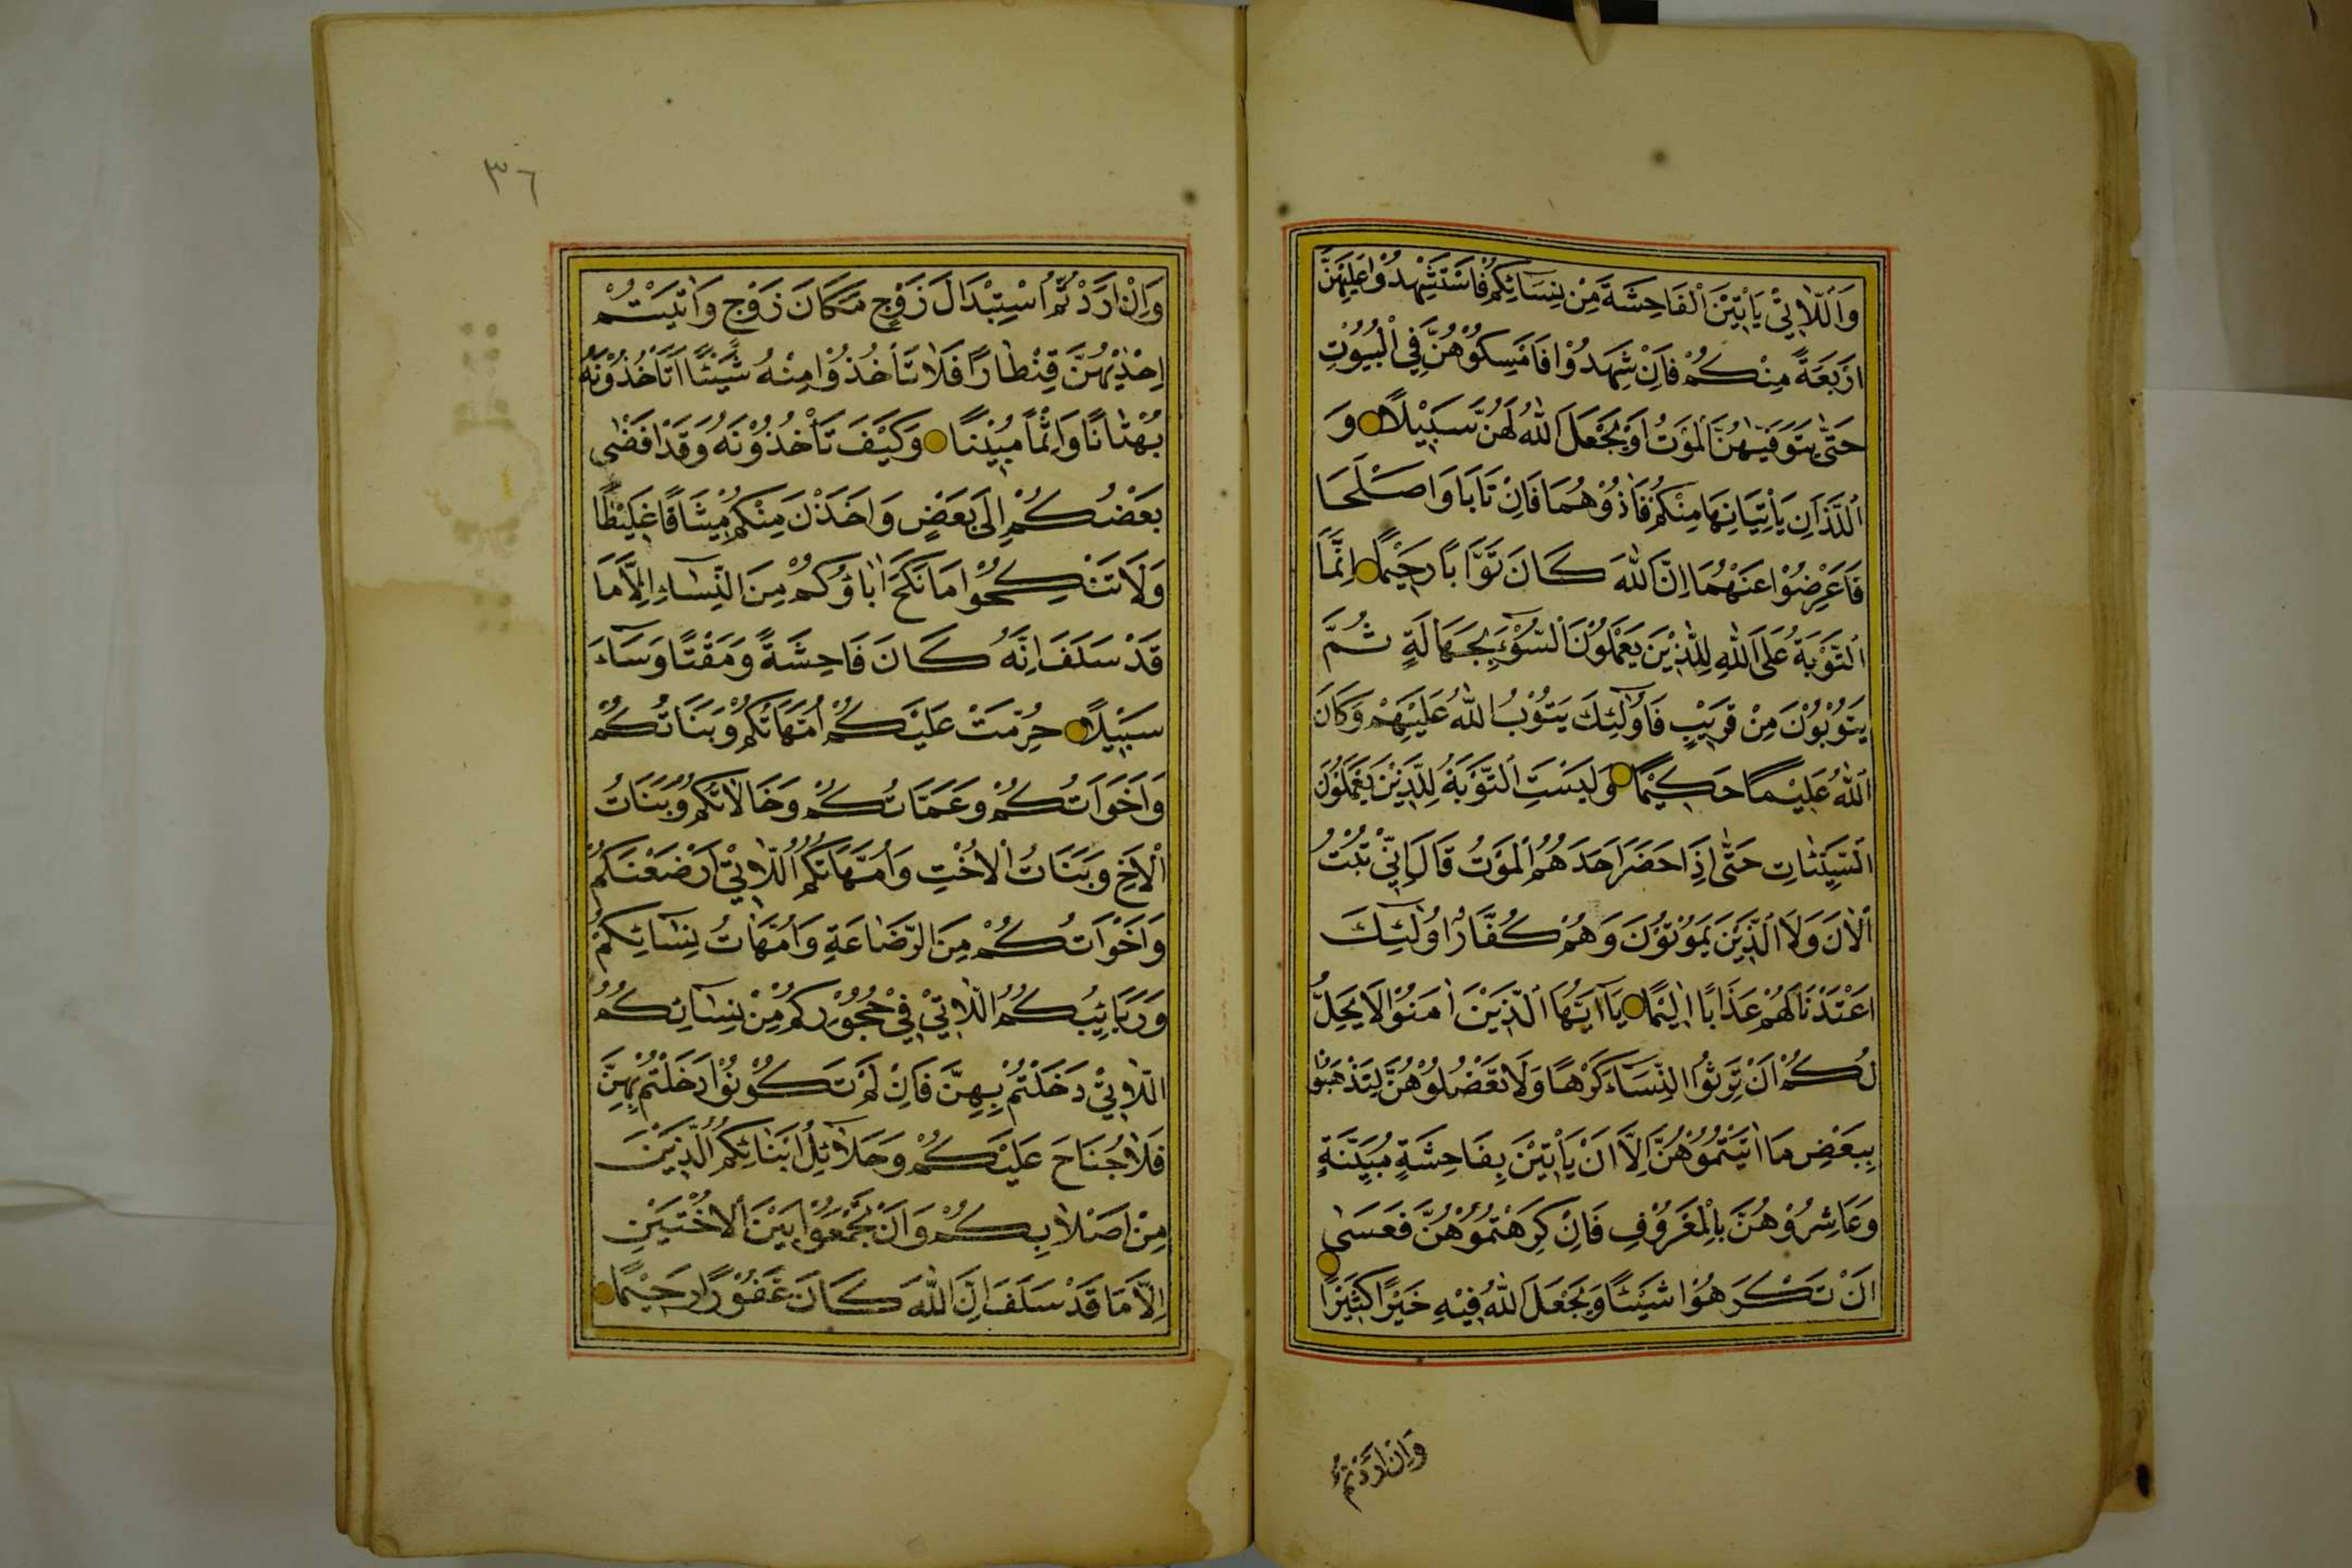 وَاَللّٰاتٖي يَأْتٖينَ الْفَاحِشَةَ مِنْ نِسَائِكُمْ فَاسْتَشْهِدُوا عَلَيْهِنَّ
اَرْبَعَةً مِنْكُمْ فَاِنْ شَهِدُوْا فَاَمْسِكُوْهُنَّ فِي الْبُيُوْتِ
حَتّٰى يَتَوَفّٰيهُنَّ الْمَوْتُ اَوْ يَجْعَلَ اللّٰهُ لَهُنَّ سَبٖيْلًا وَ
اَللَّذَانِ يَأْتِيَانِهَا مِنْكُمْ فَاٰذُوْهُمَا فَاِنْ تَابَا وَاَصْلَحَا
فَاَعْرِضُوْا عَنْهُمَا اِنَّ اللّٰهَ كَانَ تَوَّابًا رَحٖيْمًا اِنَّمَا
اَلتَّوْبَةُ عَلَى اللّٰهِ لِلَّذٖيْنَ يَعْمَلُوْنَ السُّوْٓءَ بِجَهَالَةٍ ثُمَّ
يَتُوْبُوْنَ مِنْ قَرٖيْبٍ فَاُولٰٓئِكَ يَتُوْبُ اللّٰهُ عَلَيْهِمْ وَكَانَ
اَللّٰهُ عَلٖيْمًا حَكٖيْمًا وَلَيْسَتِ التَّوْبَةُ لِلَّذٖيْنَ يَعْمَلُوْنَ
اَلسَّيِّئَاتِ حَتّٰى اِذَا حَضَرَ اَحَدَهُمُ الْمَوْتُ قَالَ اِنّٖي تُبْتُ
اَلْاٰنَ وَلَا الَّذٖيْنَ يَمُوْتُوْنَ وَهُمْ كُفَّارٌ اُولٰٓئِكَ
اَعْتَدْنَا لَهُمْ عَذَابًا اَلٖيْمًا يَآ اَيُّهَا الَّذٖيْنَ اٰمَنُوْا لَا يَحِلُّ
لَكُمْ اَنْ تَرِثُوا النِّسَآءَ كَرْهًا وَلَا تَعْضُلُوْهُنَّ لِتَذْهَبُوْا
بِبَعْضِ مَا اٰتَيْتُمُوْهُنَّ اِلَّا اَنْ يَأْتٖيْنَ بِفَاحِشَةٍ مُبَيِّنَةٍ
وَعَاشِرُوْهُنَّ بِالْمَعْرُوْفِ فَاِنْ كَرِهْتُمُوْهُنَّ فَعَسٰى
اَنْ تَكْرَهُوْا شَيْئًا وَيَجْعَلَ اللّٰهُ فٖيْهِ خَيْرًا كَثٖيْرًا
وَاِنْ اَرَدْتُمُ
٣٦
وَاِنْ اَرَدْتُمُ اسْتِبْدَالَ زَوْجٍ مَكَانَ زَوْجٍ وَاٰتَيْتُمْ
اِحْدٰيهُنَّ قِنْطَارًا فَلَا تَأْخُذُوْا مِنْهُ شَيْئًا اَتَأْخُذُوْنَهُ
بُهْتَانًا وَاِثْمًا مُبٖيْنًا وَكَيْفَ تَأْخُذُوْنَهُ وَقَدْ اَفْضٰى
بَعْضُكُمْ اِلٰى بَعْضٍ وَاَخَذْنَ مِنْكُمْ مٖيْثَاقًا غَلٖيْظًا
وَلَا تَنْكِحُوْا مَا نَكَحَ اٰبَاؤُكُمْ مِنَ النِّسَآءِ اِلَّا مَا
قَدْ سَلَفَ اِنَّهُ كَانَ فَاحِشَةً وَمَقْتًا وَسَآءَ
سَبٖيْلًا حُرِّمَتْ عَلَيْكُمْ اُمَّهَاتُكُمْ وَبَنَاتُكُمْ
وَاَخَوَاتُكُمْ وَعَمَّاتُكُمْ وَخَالَاتُكُمْ وَبَنَاتُ
الْاَخِ وَبَنَاتُ الْاُخْتِ وَاُمَّهَاتُكُمُ اللّٰاتٖي اَرْضَعْنَكُمْ
وَاَخَوَاتُكُمْ مِنَ الرَّضَاعَةِ وَاُمَّهَاتُ نِسَآئِكُمْ
وَرَبَائِبُكُمُ اللّٰاتٖي فٖي حُجُوْرِكُمْ مِنْ نِسَآئِكُمُ
اللّٰاتٖي دَخَلْتُمْ بِهِنَّ فَاِنْ لَمْ تَكُوْنُوْا دَخَلْتُمْ بِهِنَّ
فَلَا جُنَاحَ عَلَيْكُمْ وَحَلَآئِلُ اَبْنَائِكُمُ الَّذٖيْنَ
مِنْ اَصْلَابِكُمْ وَاَنْ تَجْمَعُوْا بَيْنَ الْاُخْتَيْنِ
اِلَّا مَا قَدْ سَلَفَ اِنَّ اللّٰهَ كَانَ غَفُوْرًا رَحٖيْمًا